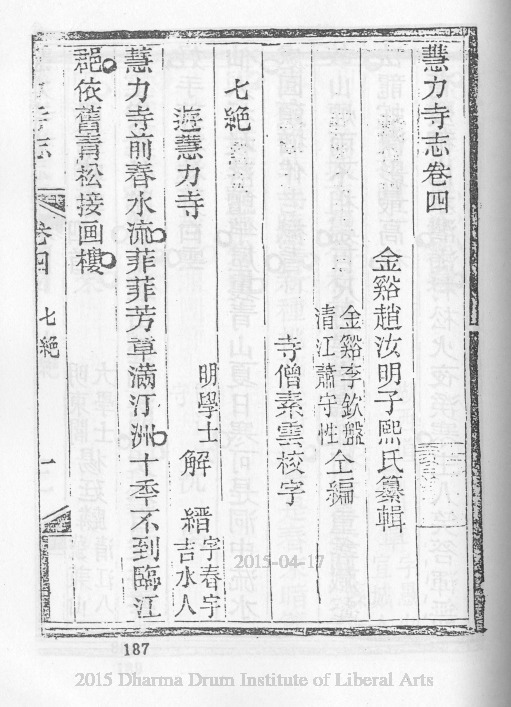 慧力寺志卷四
金谿趙汝明子熙氏纂輯
金谿李欽盤
清江蕭守性
仝編
寺僧素雲校字
七絶
遊慧力寺
明學士
解縉
字春宇
吉水人
慧力寺前春水流菲菲芳草滿汀洲十年不到臨江
郡依舊靑松接画樓
慧力寺志
卷四
七絶
一
187
2015-04-17
2015 Dharma Drum Institute of Liberal Arts